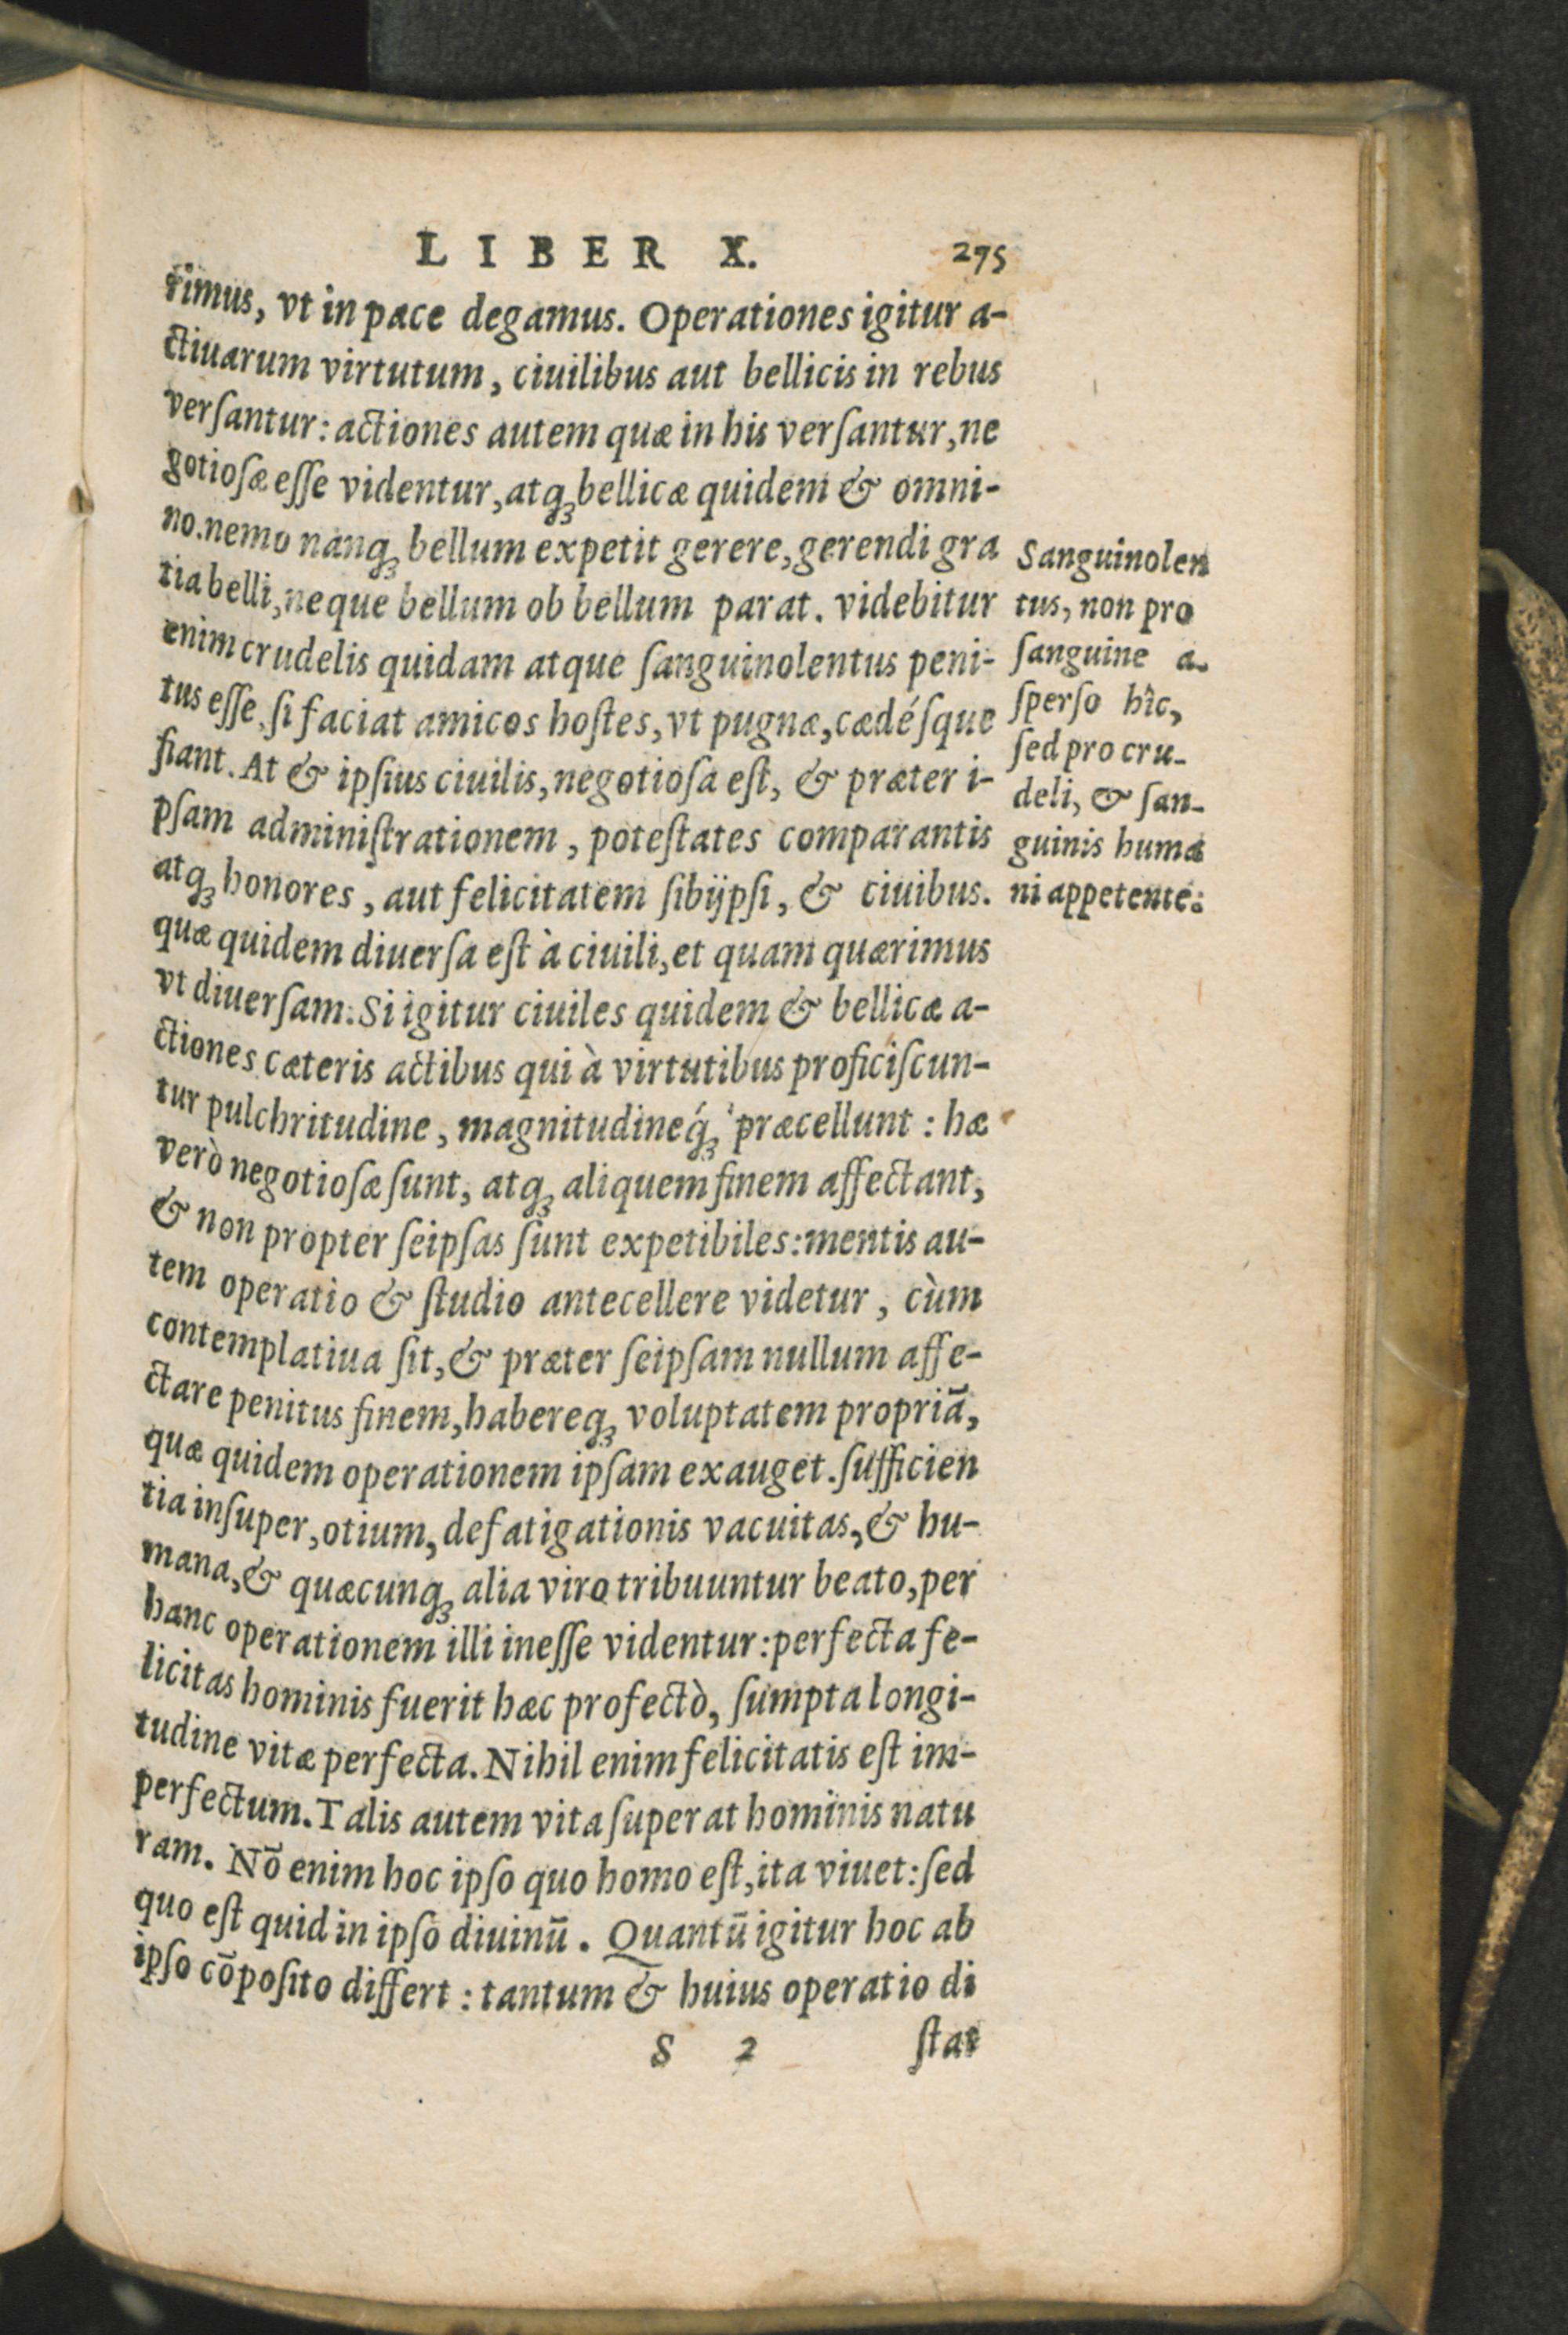 LIBER X. 275
rimus, vt in pace degamus. Operationes igitur a-
ctiuarum virtutum, ciuilibus aut bellicis in rebus
verſantur: actiones autem quæ in his verſantur, ne
gotioſæ eſſe videntur, atqꝫ bellicæ quidem & omni-
no. nemo nanqꝫ bellum expetit gerere, gerendi gra
tia belli, neque bellum ob bellum parat. videbitur
enim crudelis quidam atque ſanguinolentus peni-
tus eſſe, ſi faciat amicos hoſtes, vt pugnæ, cædéſque
fiant. At & ipſius ciuilis, negotioſa eſt, & præter i-
pſam adminiſtrationem, poteſtates comparantis
atqꝫ honores, aut felicitatem ſibijpſi, & ciuibus.
quæ quidem diuerſa eſt à ciuili, et quam quærimus
vt diuerſam. Si igitur ciuiles quidem & bellicæ a-
ctiones cæteris actibus qui à virtutibus proficiſcun-
tur pulchritudine, magnitudineq́ꝫ præcellunt: hæ
verò negotioſæ ſunt, atqꝫ aliquem finem affectant,
& non propter ſeipſas ſunt expetibiles: mentis au-
tem operatio & ſtudio antecellere videtur, cùm
contemplatiua ſit, & præter ſeipſam nullum affe-
ctare penitus finem, habereqꝫ voluptatem propriã,
quæ quidem operationem ipſam exauget. ſufficien
tia inſuper, otium, defatigationis vacuitas, & hu-
mana, & quæcunqꝫ alia viro tribuuntur beato, per
hanc operationem illi ineſſe videntur: perfecta fe-
licitas hominis fuerit hæc profectò, ſumpta longi-
tudine vitæ perfecta. Nihil enim felicitatis eſt im-
perfectum. Talis autem vita ſuperat hominis natu
ram. Nõ enim hoc ipſo quo homo eſt, ita viuet: ſed
quo eſt quid in ipſo diuinũ. Quantũ igitur hoc ab
ipſo cõpoſito differt: tantum & huius operatio di
S 2 ſtat
Sanguinolen
tus, non pro
ſanguine a-
ſperſo hîc,
ſed pro cru-
deli, & ſan-
guinis huma
ni appetente.